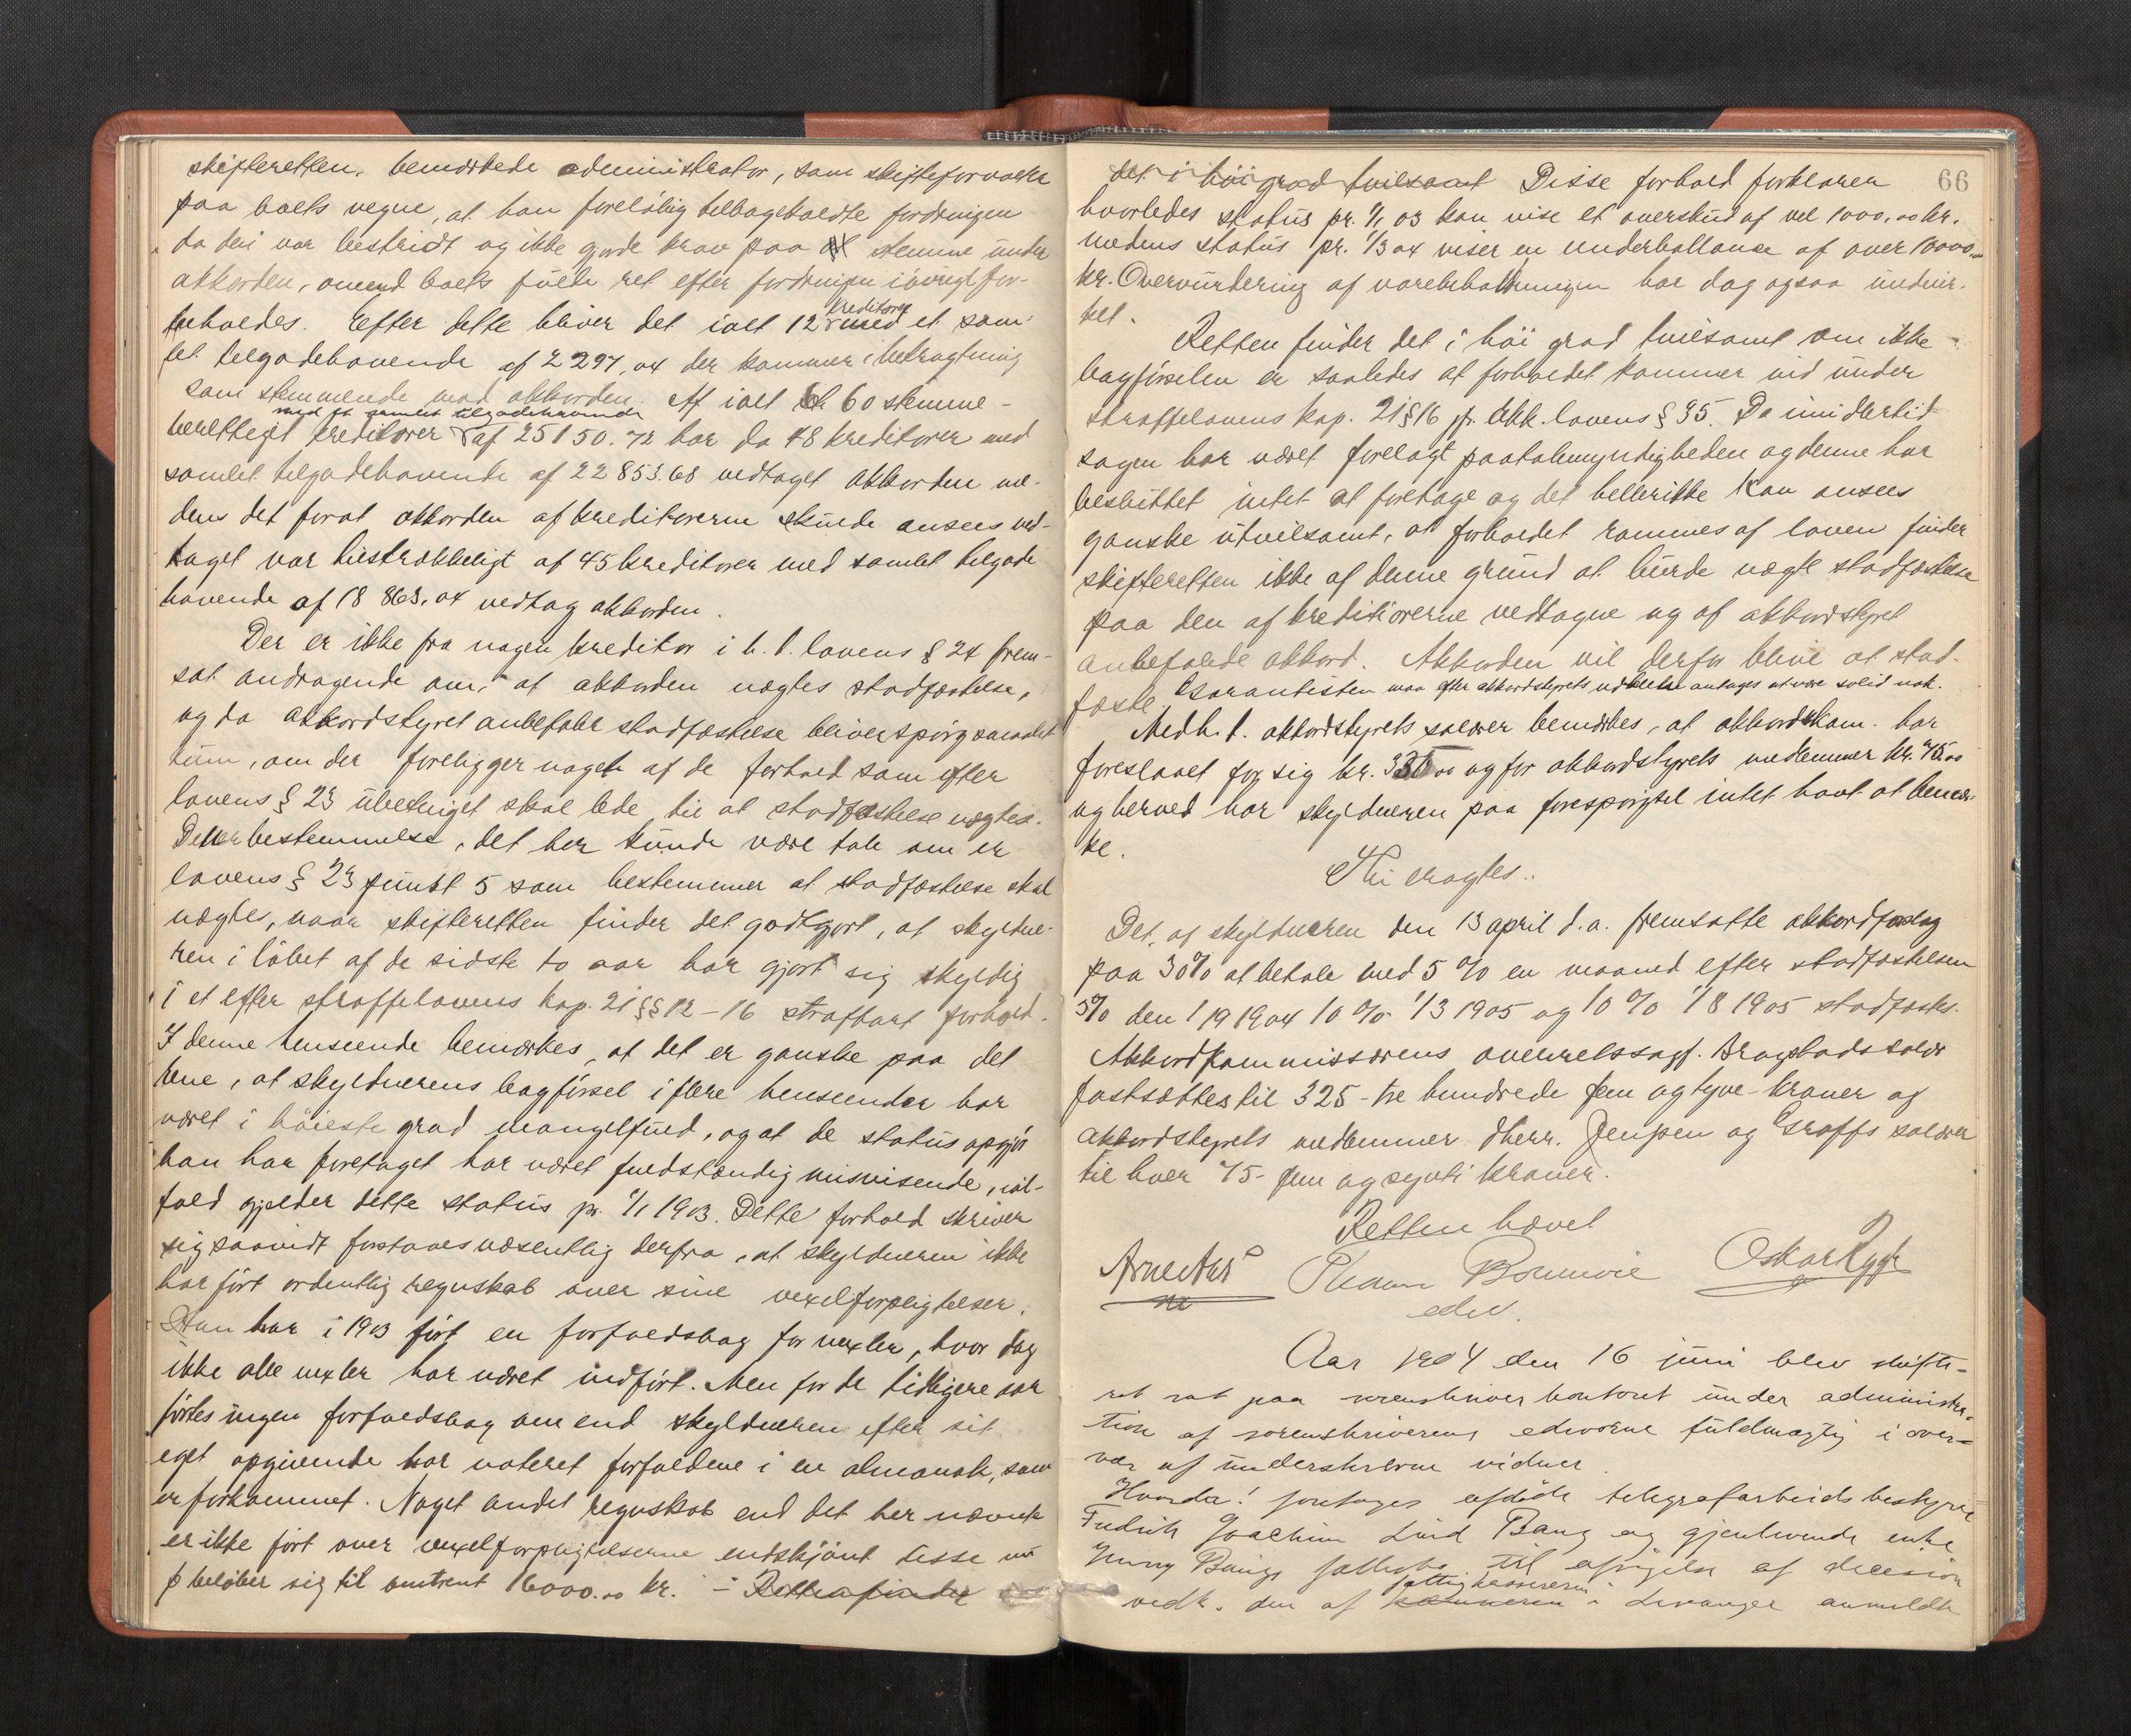 skifteretten, bemærkede administrator, som skifteforvalter
paa boets vegne, at han foreløbig tilbageholdte fordringen
da den var bestridt og ikke gjorde krav paa at stemme under
akkorden, omend boets fulde ret efter fordringen iøvrigt for-
beholdes. Efter dette bliver det ialt 12 kreditorer med et sam-
let tilgodehavende af 2297,04 der kommer i betragtning
som stemmende mod akkorden. Af ialt 60 stemme-
berettiget kreditorer med et samlet tilgodehavende af 25150.72 har da 48 kreditorer med
samlet tilgodehavende af 22853.68 vedtaget akkorden me-
dens det forat akkorden af kreditorerne skulde ansees ved-
taget var tilstrækkeligt at 45 kreditorer med samlet tilgode
havende af 18 863,04 vedtog akkorden.
Der er ikke fra nogen kreditor i h. t. lovens § 24 frem-
sat andragende om, at akkorden nægtes stadfæstelse,
og da akkordstyret anbefaler stadfæstelse bliver spørgsmaalet
kun, om der foreligger noget af de forhold som efter
lovens § 23 ubetinget skal lede til at stadfæstelse nægtes.
Den bestemmelse, det her kunde være tale om er
lovens § 23 punkt 5 som bestemmer at stadfæstelse skal
nægtes, naar skifteretten finder det godtgjort, at skyldne-
ren i løbet af de sidste to aar har gjort sig skyldig
i et efter straffelovens kap. 21 §§ 12-16 strafbart forhold.
I denne henseende bemærkes, at det er ganske paa det
rene, at skyldnerens bogførsel i flere henseender har
været i høieste grad mangelfuld, og at de status opgjør
han har foretaget har været fuldstændig misvisende, ial-
fald gjælder dette status pr. 1/1 1903. Dette forhold skriver
sig saavidt forstaaes væsentlig derfra, at skyldneren ikke
har ført ordentlig regnskab over sine vexelforpligtelser.
Han har i 1903 ført en forfaldsbog for vexler, hvor dog
ikke alle vexler har været indført. Men for de tidligere aar
førtes ingen forfaldsbog om end skyldneren efter sit
eget opgivende har noteret forfaldene i en almanak, som
er forkommet. Noget andet regnskab end det her nævnte
er ikke ført over vexelforpligtelserne endskjønt disse nu
beløber sig til omtrent 16000.00 kr. - Retten finder
66
det i høi grad tvilsomt Disse forhold forklarer
hvorledes status pr. 1/1 03 kan vise et overskud af vel 1000,00 kr.
medens status pr. 1/3 04 viser en underballance af over 10000,00
kr. Overvurdering af varebeholdningen har dog ogsaa indvir-
ket.
Retten finder det i høi grad tvilsomt om ikke
bogførselen er saaledes at forholdet kommer ind under
straffelovens kap. 21 § 16 jfr. akk. lovens § 35. Da imidlertid
sagen har været forelagt paatalemyndigheden og denne har
besluttet intet at foretage og det heller ikke kan ansees
ganske utvilsomt, at forholdet rammes af loven finder
skifteretten ikke af denne grund at burde nægte stadfæstelse
paa den af kreditorerne vedtagne og af akkordstyret
anbefalede akkord. Akkorden vil derfor blive at stad-
fæste. Garantisten maa efter akkordstyrets udtalelse antages at være solid nok.
Med h. t. akkordstyrets salærer bemærkes, at akkordkom. har
foreslaaet for sig kr. 325.00 og for akkordstyrets medlemmer kr. 75.00
og herved har skyldneren paa forespørgsel intet havt at bemær-
ke.
Thi eragtes:
Det af skyldneren den 13 april d.a. fremsatte akkordforslag
paa 30% at betale med 5 % en maaned efter stadfæstelsen
5% den 1/9 1904 10 % 1/3 1905 og 10 % 1/8 1905 stadfæstes.
Akkordkommissærens overretssagf. Bragstads salær
fastsættes til 325 - tre hundrede fem og tyve - kroner og
akkordstyrets medlemmer dherr. Jenssen og Graffs salærer
til hver 75 - fem og sytti kroner.
Retten hævet
Arne Aas Oskar Rygh
edsv.
Aar 1904 den 16 juni blev skifte-
ret sat paa sorenskriverkontoret under administra-
tion af sorenskriverens edsvorne fuldmægtig i over-
vær af underskrevne vidner.
Hvorda! foretoges afdøde telegrafarbeidsbestyrer
Fredrik Joachim Lind Bang og gjenlevende enke
Jenny Bangs fallitbo til afsigelse af decision
vedk. den af fattigkassereren i Levanger anmeldte